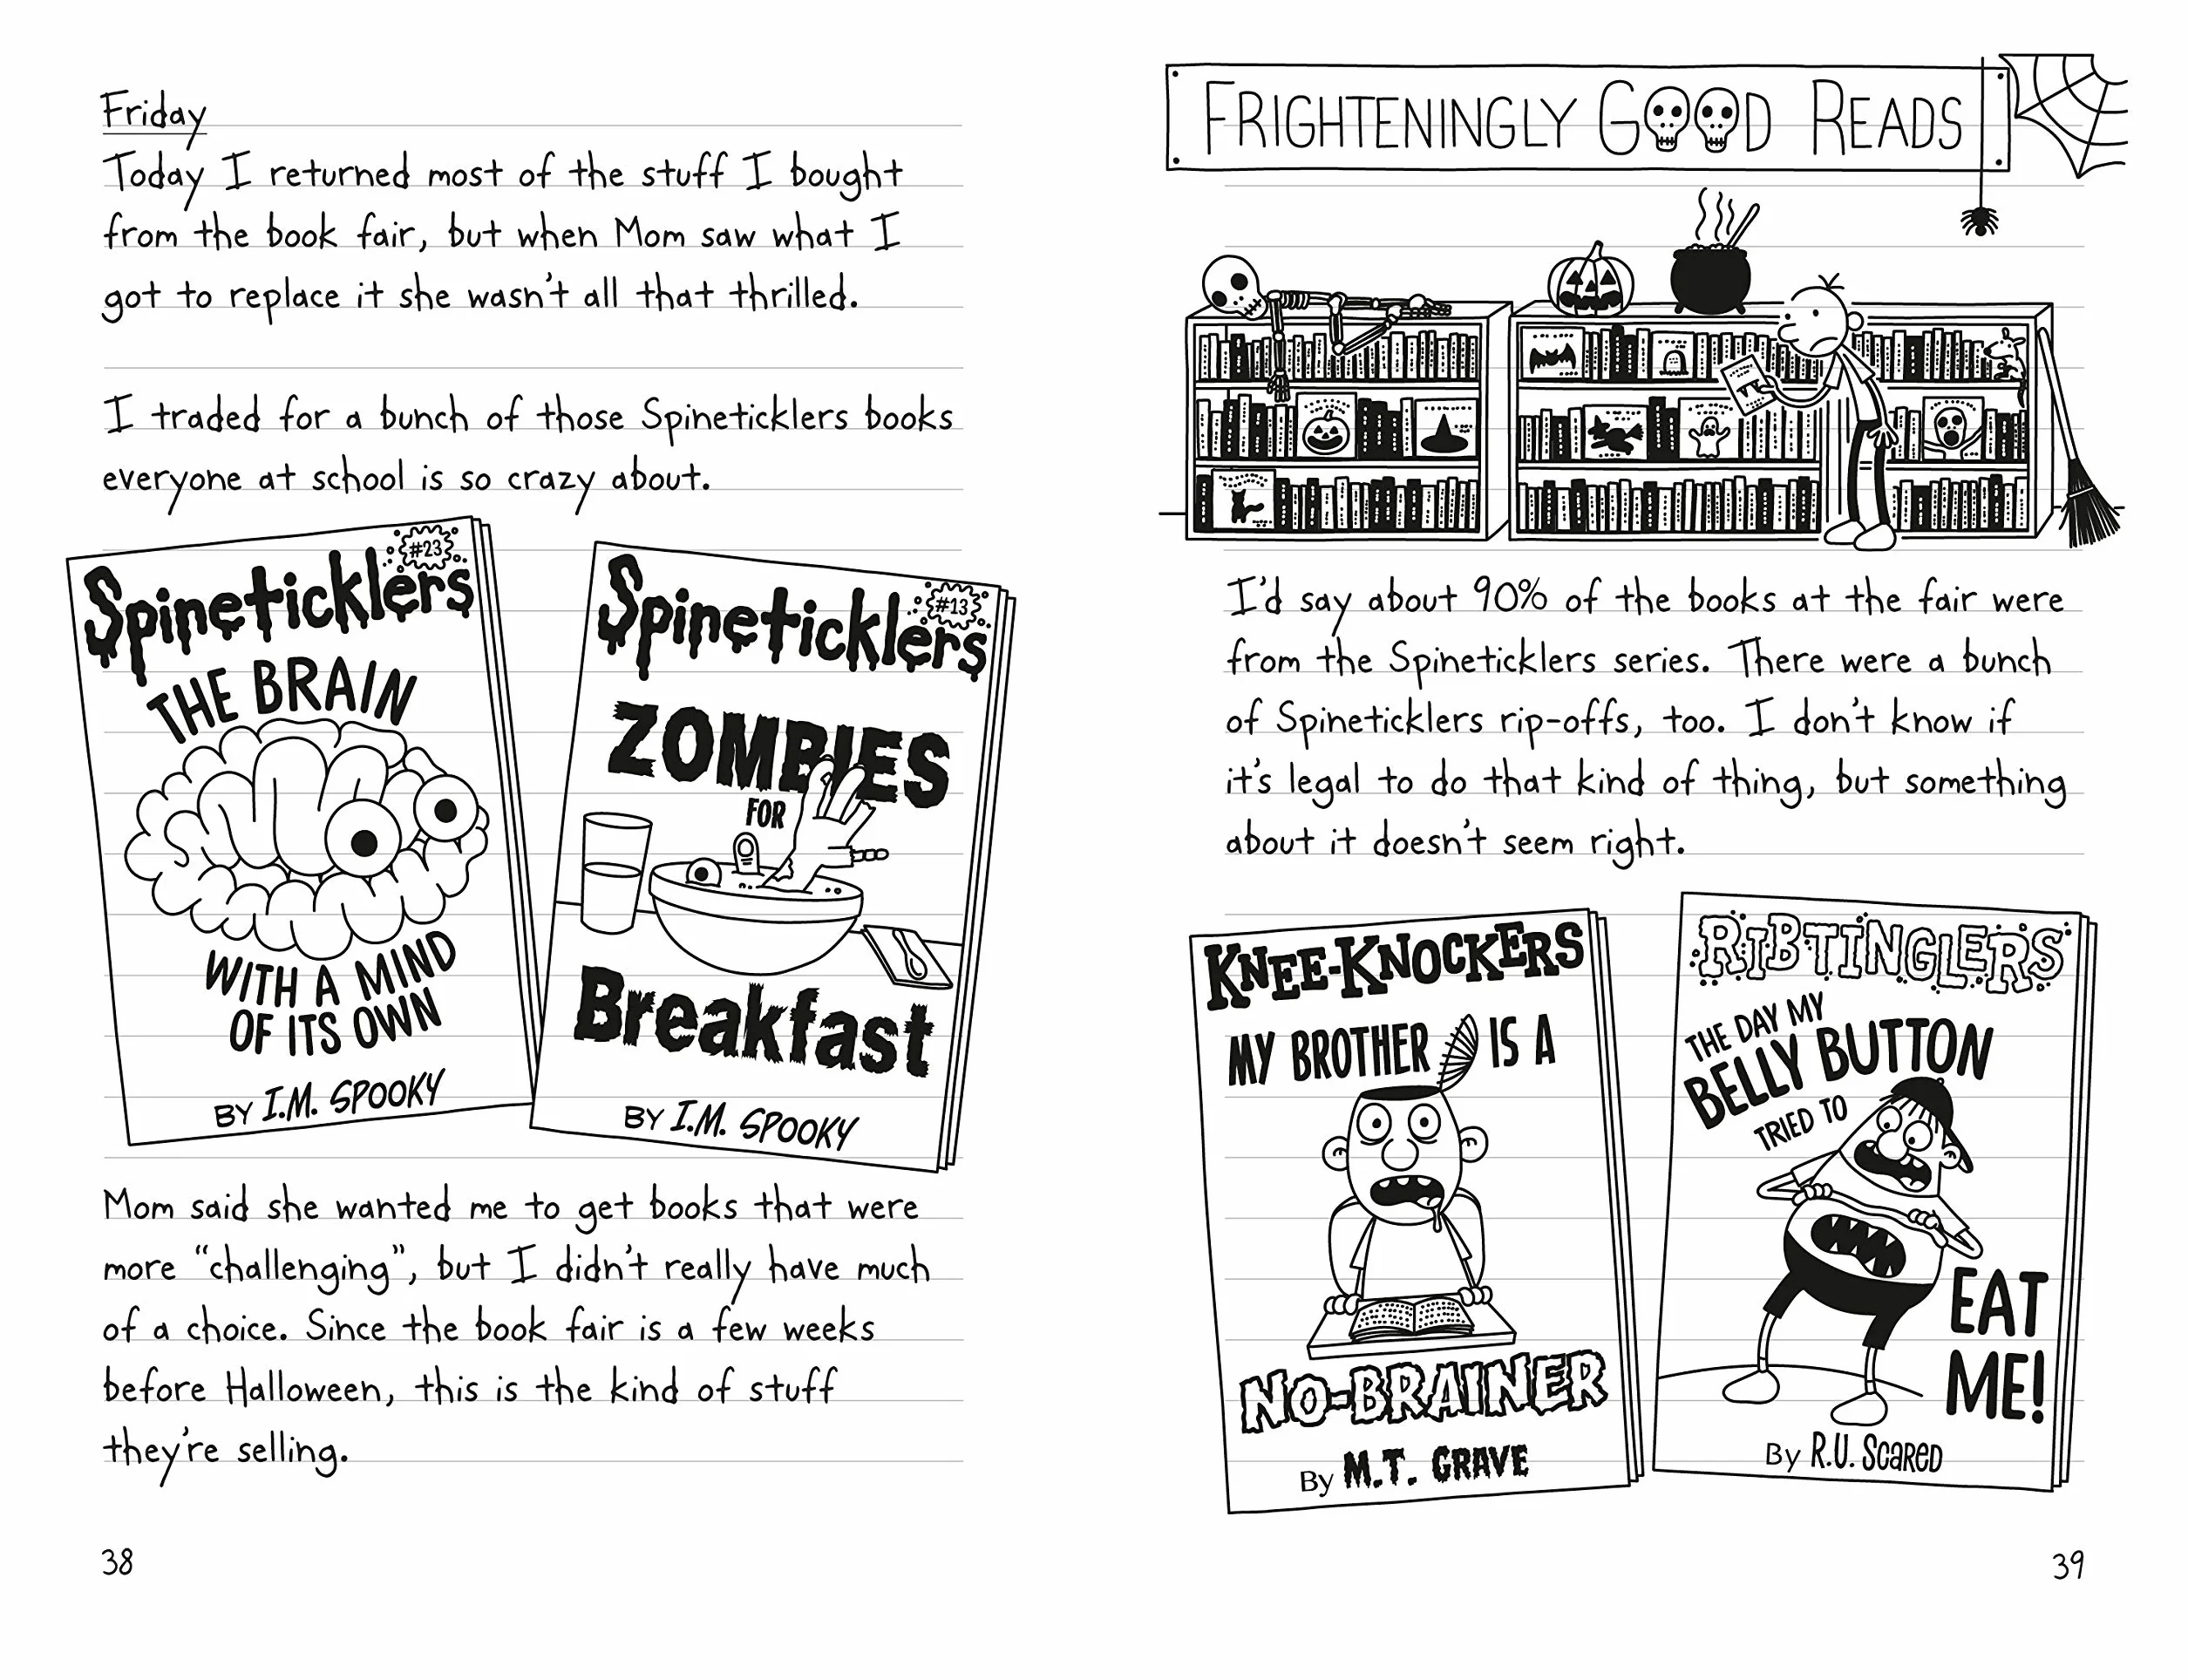 Friday
Today I returned most of the stuff I bought
from the book fair, but when Mom saw what I
got to replace it she wasn't all that thrilled.
I traded for a bunch of those Spineticklers books
everyone at school is so crazy about.
#23
Spineticklers
THE BRAIN
WITH A MIND
OF ITS OWN
BY I.M. SPOOKY
#13
Spineticklers
ZOMBIES
FOR
Breakfast
BY I.M. SPOOKY
Mom said she wanted me to get books that were
more “challenging”, but I didn't really have much
of a choice. Since the book fair is a few weeks
before Halloween, this is the kind of stuff
they're selling.
38
FRIGHTENINGLY GOOD READS
I'd say about 90% of the books at the fair were
from the Spineticklers series. There were a bunch
of Spineticklers rip-offs, too. I don't know if
it's legal to do that kind of thing, but something
about it doesn't seem right.
KNEE-KNOCKERS
MY BROTHER IS A
NO-BRAINER
By M.T. GRAVE
RIBTINGLERS
THE DAY MY
BELLY BUTTON
TRIED TO
EAT
ME!
By R.U. Scared
39